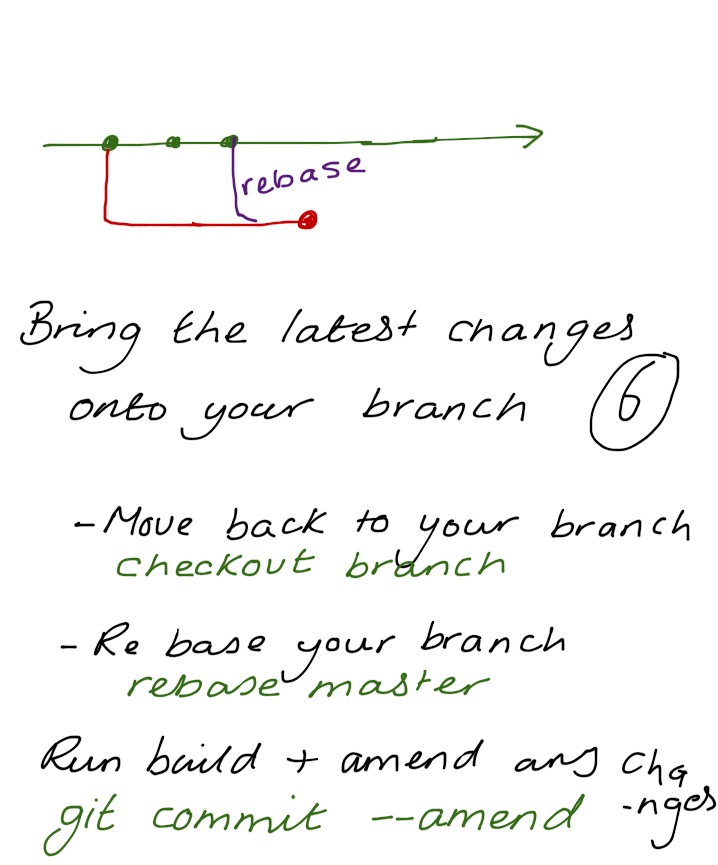 rebase
Bring the latest changes
onto your branch 6
- Move back to your branch
checkout branch
- Re base your branch
rebase master
Run build + amend any cha
-nges
git commit --amend